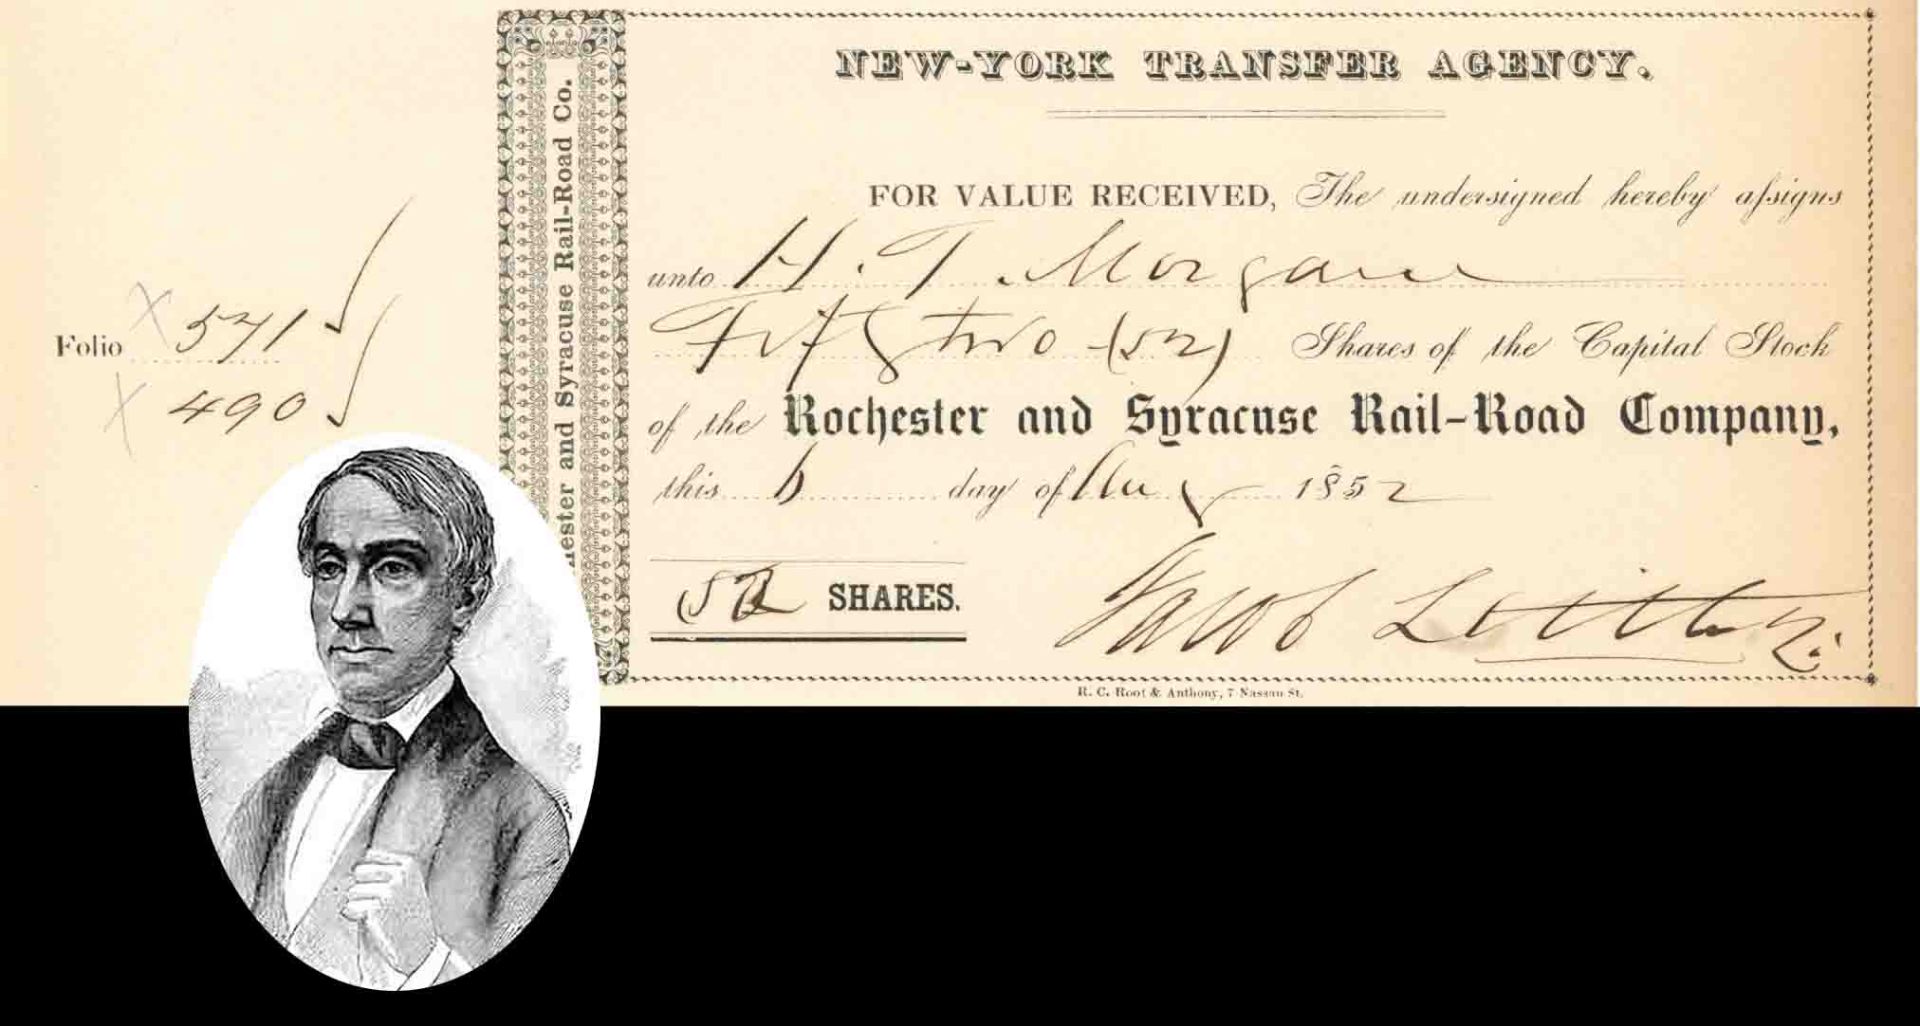 NEW-YORK TRANSFER AGENCY.
FOR VALUE RECEIVED, The undersigned hereby aſsigns
unto H. T. Morgan
Fifty two (52) Shares of the Capital Stock
of the Rochester and Syracuse Rail-Road Company,
this 6 day of Aug 1852
52 SHARES.
Jacob Little
R. C. Root & Anthony, 7 Nassau St.
Folio 571
490
hester and Syracuse Rail-Road Co.